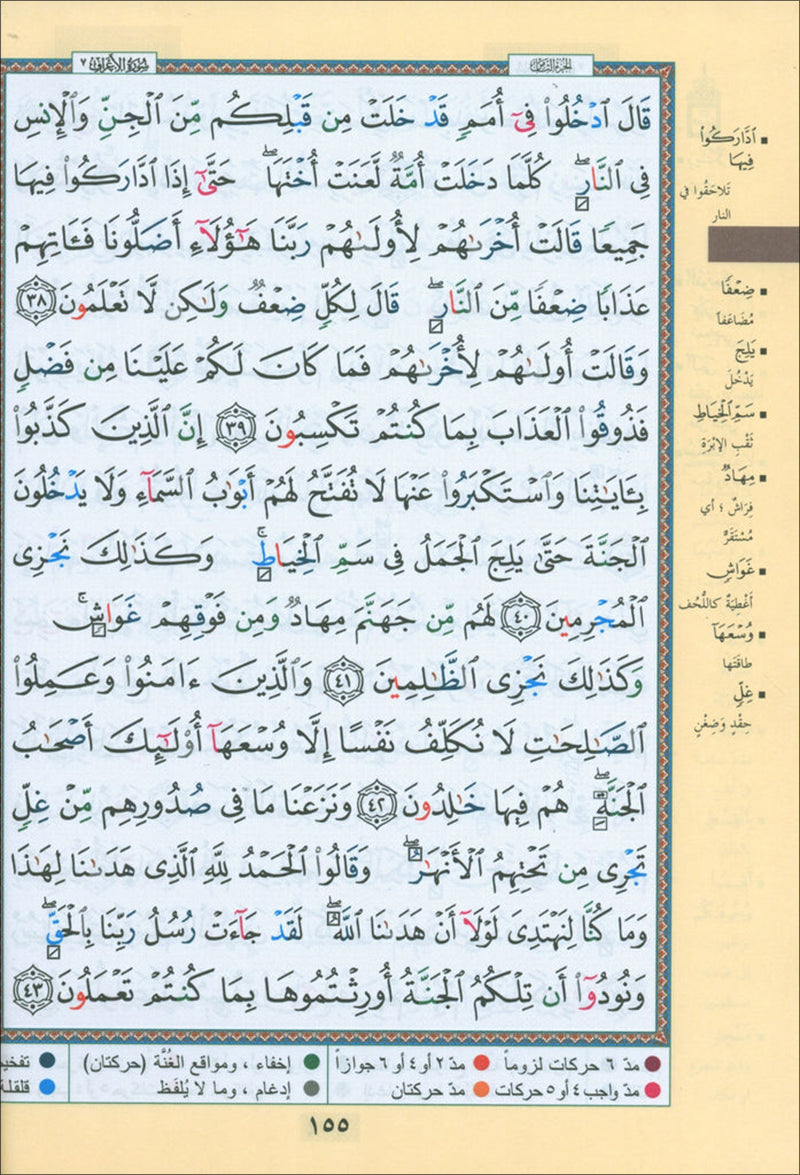 سورة الأعراف ٧
الجزء الثامن
قَالَ ٱدْخُلُوا۟ فِىٓ أُمَمٍ قَدْ خَلَتْ مِن قَبْلِكُم مِّنَ ٱلْجِنِّ وَٱلْإِنسِ
فِى ٱلنَّارِ ۖ كُلَّمَا دَخَلَتْ أُمَّةٌ لَّعَنَتْ أُخْتَهَا ۖ حَتَّىٰٓ إِذَا ٱدَّارَكُوا۟ فِيهَا
جَمِيعًا قَالَتْ أُخْرَىٰهُمْ لِأُولَىٰهُمْ رَبَّنَا هَٰٓؤُلَآءِ أَضَلُّونَا فَـَٔاتِهِمْ
عَذَابًا ضِعْفًا مِّنَ ٱلنَّارِ ۖ قَالَ لِكُلٍّ ضِعْفٌ وَلَٰكِن لَّا تَعْلَمُونَ ٣٨
وَقَالَتْ أُولَىٰهُمْ لِأُخْرَىٰهُمْ فَمَا كَانَ لَكُمْ عَلَيْنَا مِن فَضْلٍ
فَذُوقُوا۟ ٱلْعَذَابَ بِمَا كُنتُمْ تَكْسِبُونَ ٣٩ إِنَّ ٱلَّذِينَ كَذَّبُوا۟
بِـَٔايَٰتِنَا وَٱسْتَكْبَرُوا۟ عَنْهَا لَا تُفَتَّحُ لَهُمْ أَبْوَٰبُ ٱلسَّمَآءِ وَلَا يَدْخُلُونَ
ٱلْجَنَّةَ حَتَّىٰ يَلِجَ ٱلْجَمَلُ فِى سَمِّ ٱلْخِيَاطِ ۚ وَكَذَٰلِكَ نَجْزِى
ٱلْمُجْرِمِينَ ٤٠ لَهُم مِّن جَهَنَّمَ مِهَادٌ وَمِن فَوْقِهِمْ غَوَاشٍ ۚ
وَكَذَٰلِكَ نَجْزِى ٱلظَّٰلِمِينَ ٤١ وَٱلَّذِينَ ءَامَنُوا۟ وَعَمِلُوا۟
ٱلصَّٰلِحَٰتِ لَا نُكَلِّفُ نَفْسًا إِلَّا وُسْعَهَآ أُو۟لَٰٓئِكَ أَصْحَٰبُ
ٱلْجَنَّةِ ۖ هُمْ فِيهَا خَٰلِدُونَ ٤٢ وَنَزَعْنَا مَا فِى صُدُورِهِم مِّنْ غِلٍّ
تَجْرِى مِن تَحْتِهِمُ ٱلْأَنْهَٰرُ ۖ وَقَالُوا۟ ٱلْحَمْدُ لِلَّهِ ٱلَّذِى هَدَىٰنَا لِهَٰذَا
وَمَا كُنَّا لِنَهْتَدِىَ لَوْلَآ أَنْ هَدَىٰنَا ٱللَّهُ ۖ لَقَدْ جَآءَتْ رُسُلُ رَبِّنَا بِٱلْحَقِّ ۖ
وَنُودُوٓا۟ أَن تِلْكُمُ ٱلْجَنَّةُ أُورِثْتُمُوهَا بِمَا كُنتُمْ تَعْمَلُونَ ٤٣
ادَّارَكُوا
فِيهَا
تَلاحَقُوا في
النار
ضِعْفًا
مُضَاعَفاً
يَلِجَ
يَدْخُلَ
سَمِّ ٱلْخِيَاطِ
ثَقْبِ الإِبْرَةِ
مِهَادٌ
فِرَاشٌ ؛ أي
مُسْتَقَرٌّ
غَوَاشٍ
أَغْطِيَةٌ كاللُّحُف
وُسْعَهَآ
طاقَتَها
غِلٍّ
حِقْدٍ وَضِغْنٍ
مدّ ٦ حركات لزوماً
مدّ ٢ أو ٤ أو ٦ جوازاً
إخفاء ، ومواقع الغُنَّة (حركتان)
تفخي
مدّ واجب ٤ أو ٥ حركات
مدّ حركتان
إدغام ، وما لا يُلفَظ
قلقلة
١٥٥